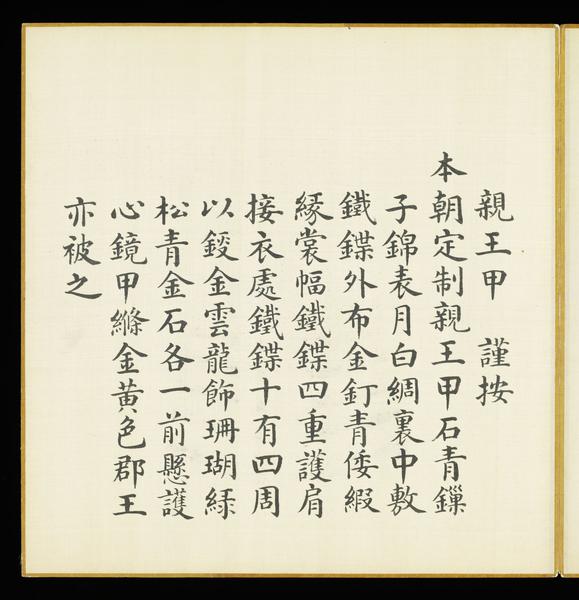 親王甲　謹按
本朝定制親王甲石青鏁
子錦表月白綢裏中敷
鐵鍱外布金釘青倭緞
緣裳幅鐵鍱四重護肩
接衣處鐵鍱十有四周
以鋄金雲龍飾珊瑚綠
松青金石各一前懸護
心鏡甲絛金黃色郡王
亦被之